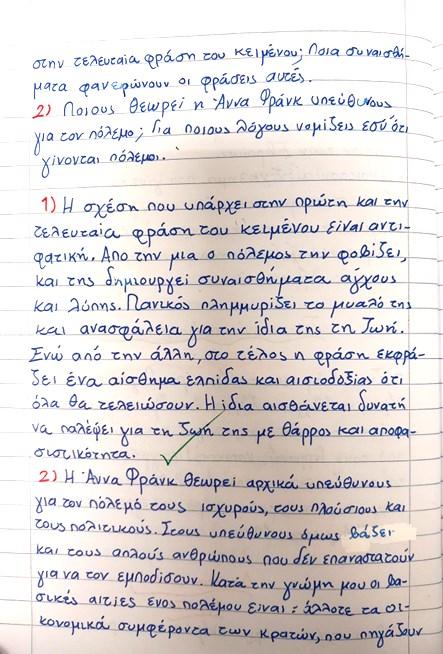 στην τελευταία φράση του κειμένου; Ποια συναισθή-
ματα φανερώνουν οι φράσεις αυτές.
2) Ποιους θεωρεί η Άννα Φρανκ υπεύθυνους
για τον πόλεμο; Για ποιους λόγους νομίζεις εσύ ότι
γίνονται πόλεμοι.
1) Η σχέση που υπάρχει στην πρώτη και την
τελευταία φράση του κειμένου είναι αντι-
φατική. Απο την μια ο πόλεμος την φοβίζει,
και της δημιουργεί συναισθήματα άγχους
και λύπης. Πανικός πλημμυρίζει το μυαλό της
και ανασφάλεια για την ίδια της τη ζωή.
Ενώ από την άλλη, στο τέλος η φράση εκφρά-
ζει ένα αίσθημα ελπίδας και αισιοδοξίας ότι
όλα θα τελειώσουν. Η ίδια αισθάνεται δυνατή
να παλέψει για τη ζωή της με θάρρος και αποφα-
σιστικότητα.
2) Η Άννα Φρανκ θεωρεί αρχικά υπεύθυνους
για τον πόλεμό τους ισχυρούς, τους πλούσιους και
τους πολιτικούς. Στους υπεύθυνους όμως βάζει
και τους απλούς ανθρώπους που δεν επαναστατούν
για να τον εμποδίσουν. Κατά την γνώμη μου οι βα-
σικές αιτίες ενος πολέμου είναι: άλλοτε τα οι-
κονομικά συμφέροντα των κρατών, που πηγάζουν